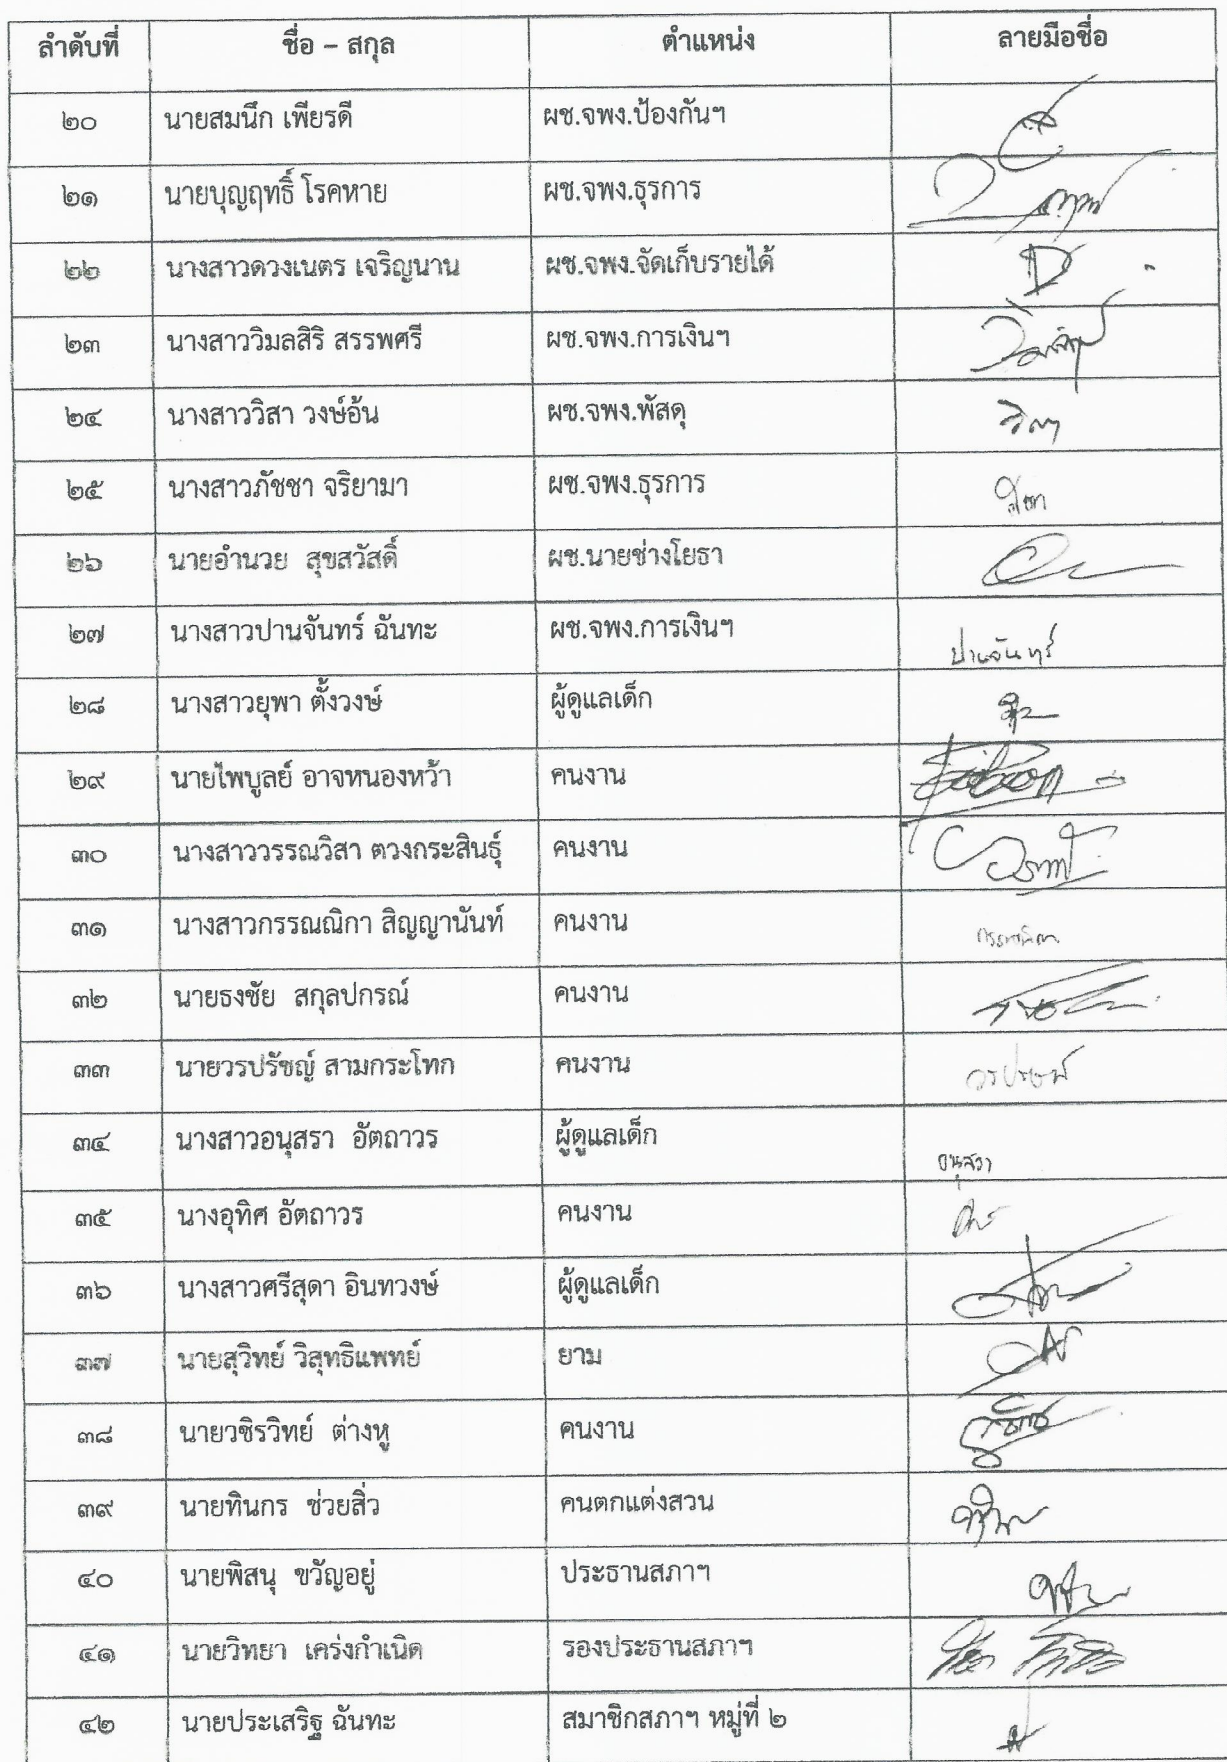 ลำดับที่ ชื่อ – สกุล ตำแหน่ง ลายมือชื่อ
๒๐ นายสมนึก เพียรดี ผช.จพง.ป้องกันฯ
๒๑ นายบุญฤทธิ์ โรคหาย ผช.จพง.ธุรการ
๒๒ นางสาวดวงเนตร เจริญนาน ผช.จพง.จัดเก็บรายได้
๒๓ นางสาววิมลสิริ สรรพศรี ผช.จพง.การเงินฯ
๒๔ นางสาววิสา วงษ์อ้น ผช.จพง.พัสดุ วิสา
๒๕ นางสาวภัชชา จริยามา ผช.จพง.ธุรการ
๒๖ นายอำนวย สุขสวัสดิ์ ผช.นายช่างโยธา
๒๗ นางสาวปานจันทร์ ฉันทะ ผช.จพง.การเงินฯ ปานจันทร์
๒๘ นางสาวยุพา ตั้งวงษ์ ผู้ดูแลเด็ก
๒๙ นายไพบูลย์ อาจหนองหว้า คนงาน
๓๐ นางสาววรรณวิสา ตวงกระสินธุ์ คนงาน
๓๑ นางสาวกรรณณิกา สิญญานันท์ คนงาน กรรณณิกา
๓๒ นายธงชัย สกุลปกรณ์ คนงาน
๓๓ นายวรปรัชญ์ สามกระโทก คนงาน วรปรัชญ์
๓๔ นางสาวอนุสรา อัตถาวร ผู้ดูแลเด็ก อนุสรา
๓๕ นางอุทิศ อัตถาวร คนงาน
๓๖ นางสาวศรีสุดา อินทวงษ์ ผู้ดูแลเด็ก
๓๗ นายสุวิทย์ วิสุทธิแพทย์ ยาม
๓๘ นายวชิรวิทย์ ต่างหู คนงาน
๓๙ นายทินกร ช่วยสิ่ว คนตกแต่งสวน
๔๐ นายพิสนุ ขวัญอยู่ ประธานสภาฯ
๔๑ นายวิทยา เคร่งกำเนิด รองประธานสภาฯ
๔๒ นายประเสริฐ ฉันทะ สมาชิกสภาฯ หมู่ที่ ๒